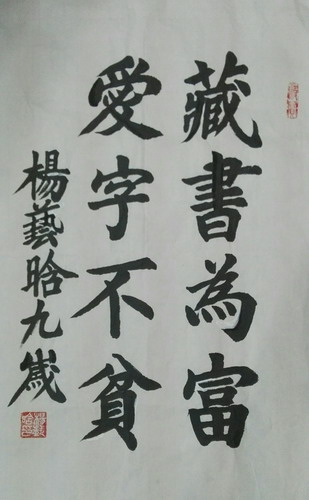 藏書為富
愛字不貧
楊藝晗九歲